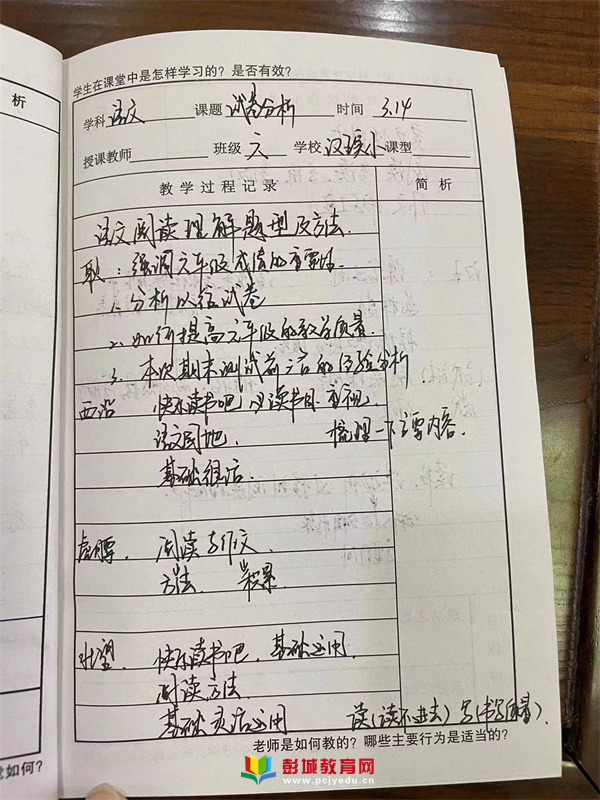 学生在课堂中是怎样学习的？是否有效？
析
学科 语文 课题 试卷分析 时间 3.14
授课教师 班级 六 学校 汉王小 课型
教学过程记录 简析
语文阅读理解题型及方法.
耿：强调六年级成绩的重要性.
1. 分析以往试卷
2. 如何提高六年级的教学质量.
3. 本次期末测试前后的经验分析
西沿 快乐读书吧 必读书目 重视.
语文园地. 梳理一下主要内容.
基础很活.
阅读与作文.
方法. 积累
快乐读书吧. 基础运用.
阅读方法
基础灵活运用 读(读不进去) 写(书写质量).
老师是如何教的？哪些主要行为是适当的？
如何？
彭城教育网
www.pcjyedu.cn